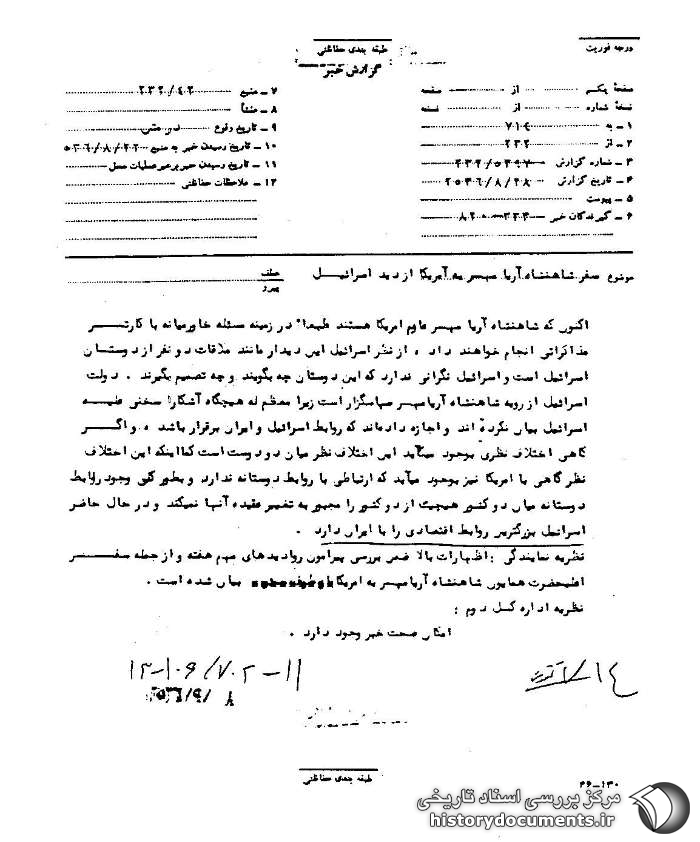 درجه فوریت
طبقه بندی حفاظتی
گزارش خبر
صفحهٔ یکم از صفحه
نسخهٔ شماره از نسخه
۱ـ به ۷۱۴
۲ـ از ۲۳۲
۳ـ شماره گزارش ۲۳۲/۵۳۹۷
۴ـ تاریخ گزارش ۲۵۳۶/۸/۲۸
۵ـ پیوست
۶ـ گیرندگان خبر ۸۲۰۰-۳۳۳
۷ـ منبع ۲۳۲/۴۲
۸ـ منشأ
۹ـ تاریخ وقوع
۱۰ـ تاریخ رسیدن خبر به منبع ۵۳۶/۸/۲۲
۱۱ـ تاریخ رسیدن خبر برهبر عملیات محل
۱۲ـ ملاحظات حفاظتی
موضوع سفر شاهنشاه آریا مهر به آمریکا از دید اسرائیل
عطف
پیرو
اکنون که شاهنشاه آریا مهر عازم امریکا هستند طبعا" در زمینه مسئله خاورمیانه با کارتر
مذاکراتی انجام خواهند داد ، از نظر اسرائیل این دیدار مانند ملاقات دو نفر از دوستان
اسرائیل است و اسرائیل نگرانی ندارد که این دوستان چه بگویند و چه تصمیم بگیرند . دولت
اسرائیل از رویه شاهنشاه آریا مهر سپاسگزار است زیرا معظم له هیچگاه آشکارا سخنی علیه
اسرائیل بیان نکرده اند و اجازه داده‌اند که روابط اسرائیل و ایران برقرار باشد ، و اگر
گاهی اختلاف نظری بوجود میآید این اختلاف نظر میان دو دوست است کما اینکه این اختلاف
نظر گاهی با امریکا نیز بوجود میآید که ارتباطی با روابط دوستانه ندارد و بطور کلی وجود روابط
دوستانه میان دو کشور هیچیک از دو کشور را مجبور به تغییر عقیده آنها نمیکند و در حال حاضر
اسرائیل بزرگترین روابط اقتصادی را با ایران دارد .
نظریه نمایندگی : اظهارات بالا ضمن بررسی پیرامون رویدادهای مهم هفته و از جمله سفر
اعلیحضرت همایون شاهنشاه آریا مهر به امریکا بیان شده است .
نظریه اداره کل دوم :
امکان صحت خبر وجود دارد .
۷۱۴
۱۱-۷۰۲/۱۲-۱۰۶
طبقه بندی حفاظتی
۲۶-۱۳۰
مرکز بررسی اسناد تاریخی
historydocuments.ir